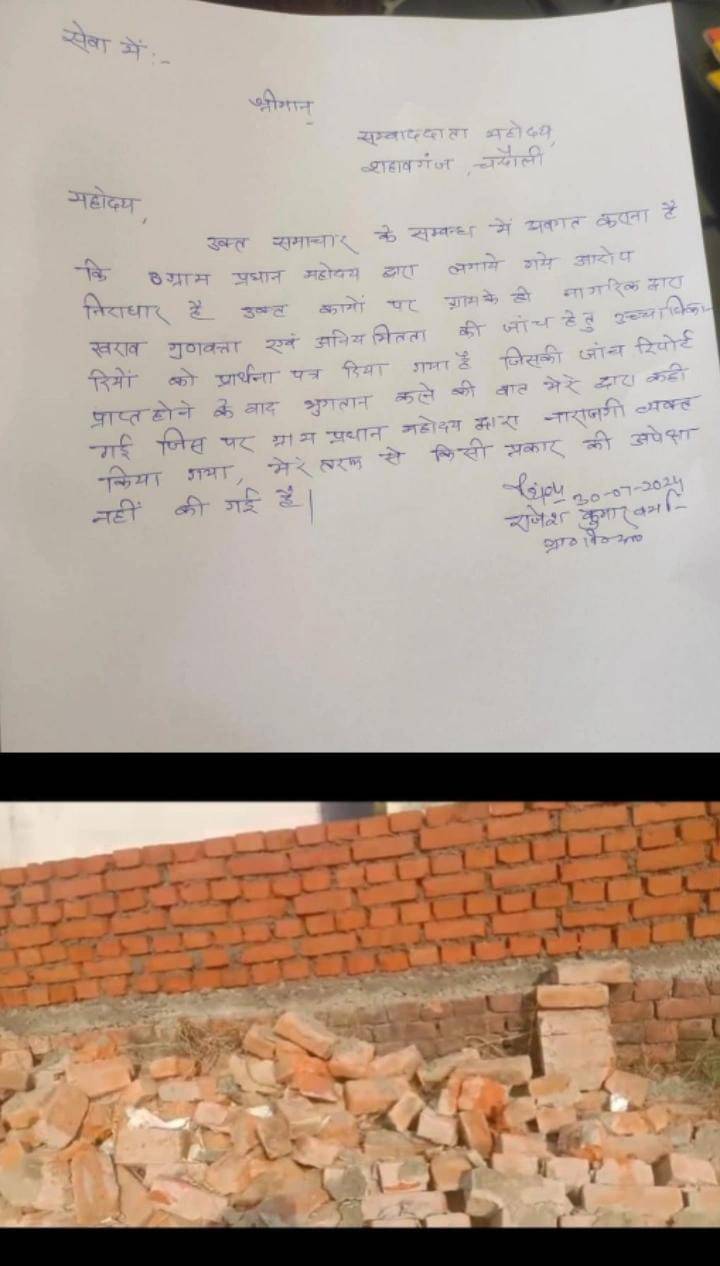 सेवा में :-
श्रीमान्
सम्वाददाता महोदय,
शहाबगंज, चन्दौली
महोदय,
उक्त समाचार के सम्बन्ध में अवगत कराना है
कि ग्राम प्रधान महोदय द्वारा लगाये गये आरोप
निराधार है उक्त कार्यों पर ग्राम के ही नागरिक द्वारा
खराब गुणवत्ता एवं अनियमितता की जांच हेतु उच्चाधिका-
रियों को प्रार्थना पत्र दिया गया है जिसकी जांच रिपोर्ट
प्राप्त होने के बाद भुगतान करने की बात मेरे द्वारा कही
गई जिस पर ग्राम प्रधान महोदय द्वारा नाराजगी व्यक्त
किया गया, मेरे तरफ से किसी प्रकार की अपेक्षा
नहीं की गई है|
30-07-2024
राजेश कुमार वर्मा
ग्रा०वि०अ०